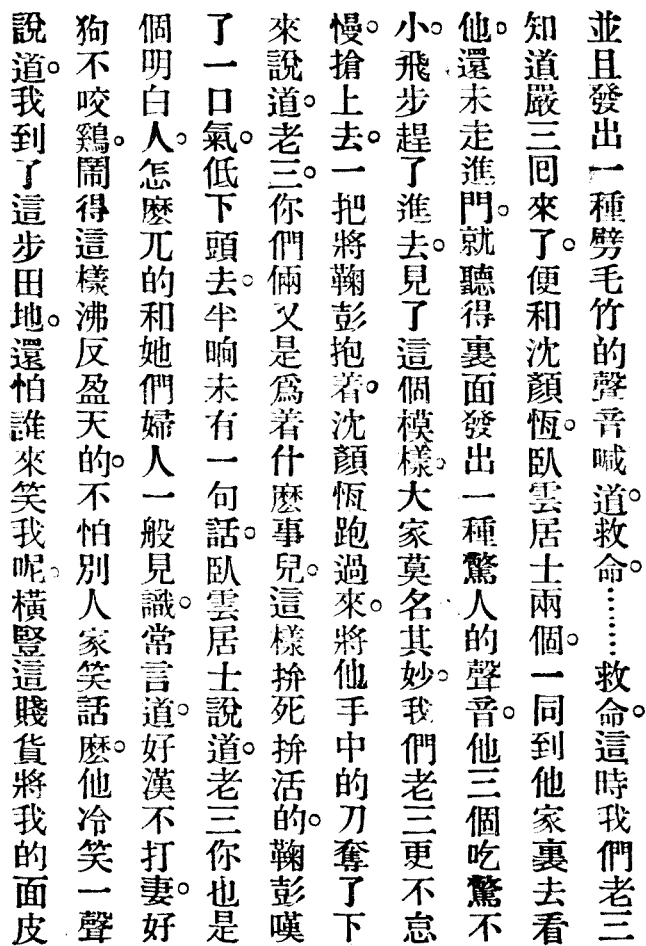 並且發出一種劈毛竹的聲音喊道。救命。……救命。這時我們老三
知道嚴三回來了。便和沈顏恆。臥雲居士兩個。一同到他家裏去看
他。還未走進門。就聽得裏面發出一種驚人的聲音。他三個吃驚不
小。飛步趕了進去。見了這個模樣。大家莫名其妙。我們老三更不怠
慢。搶上去。一把將鞠彭抱着。沈顏恆跑過來。將他手中的刀奪了下
來說道。老三。你們倆又是爲着什麽事兒。這樣拚死拚活的。鞠彭嘆
了一口氣。低下頭去。半晌未有一句話。臥雲居士說道。老三你也是
個明白人。怎麽兀的和她們婦人一般見識。常言道。好漢不打妻。好
狗不咬鷄。鬧得這樣沸反盈天的。不怕別人家笑話麽。他冷笑一聲
說道。我到了這步田地。還怕誰來笑我呢。橫豎這賤貨將我的面皮